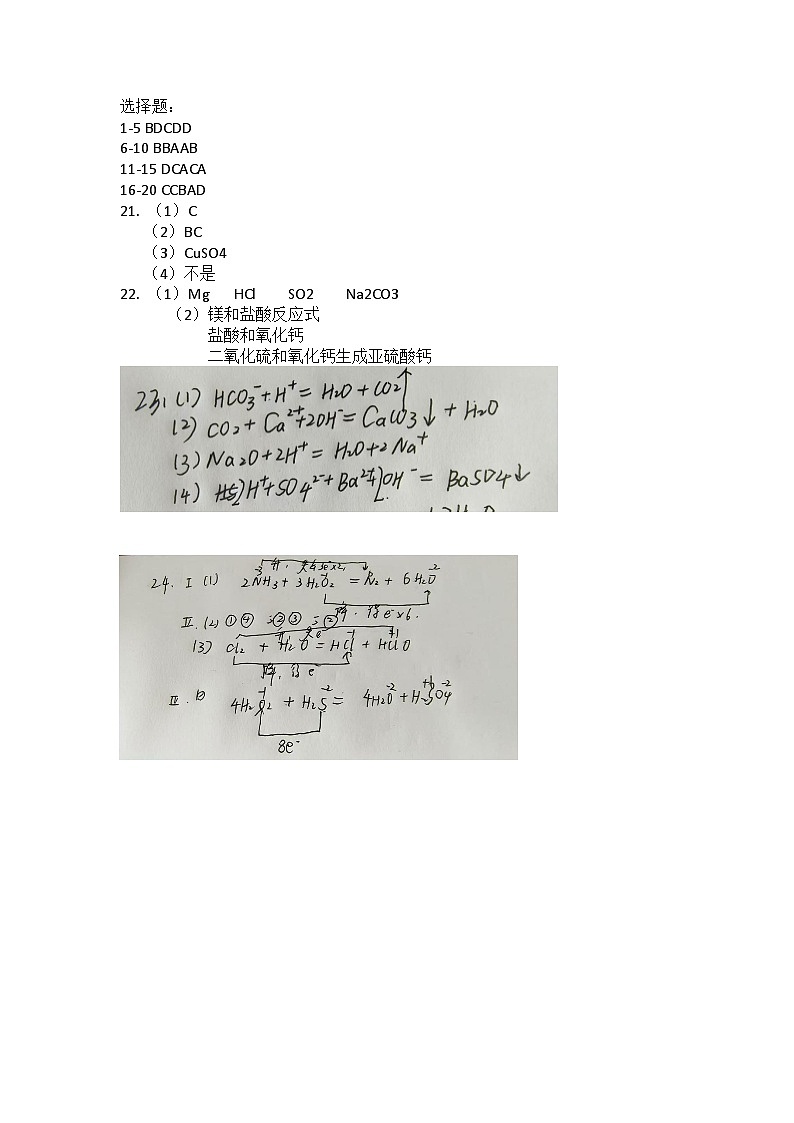 选择题:
1-5 BDCDD
6-10 BBAAB
11-15 DCACA
16-20 CCBAD
21. （1）C
（2）BC
（3）CuSO4
（4）不是
22. （1）Mg HCl SO2 Na2CO3
（2）镁和盐酸反应式
盐酸和氧化钙
二氧化硫和氧化钙生成亚硫酸钙
23, (1) HCO₃⁻+H⁺= H₂O + CO₂↑
(2) CO₂+ Ca²⁺+2OH⁻= CaCO₃↓ + H₂O
(3) Na₂O+2H⁺ = H₂O+2Na⁺
(4) 2H⁺+SO₄²⁻+Ba²⁺+2OH⁻= BaSO₄↓
+2H₂O
24. I (1) 2NH₃+ 3H₂O₂ = N₂ + 6H₂O
-3 升, 失 e⁻ -1 -2
降, 得e⁻×6.
II. (2) ①④ ②③ ②
(3) Cl₂ + H₂O = HCl + HClO
升 失e⁻ -1 +1
降, 得 e⁻
III. (1) 4H₂O₂ + H₂S = 4H₂O + H₂SO₄
-1 -2 -2 +6 -2
8e⁻